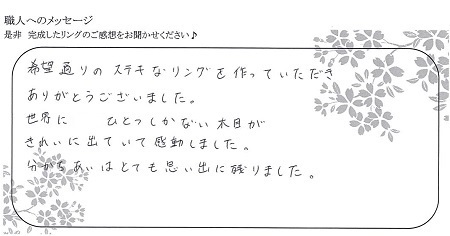 職人へのメッセージ
是非 完成したリングのご感想をお聞かせください♪
希望通りのステキなリングを作っていただき
ありがとうございました。
世界に ひとつしかない木目が
きれいに出ていて感動しました。
分かちあいはとても思い出に残りました。